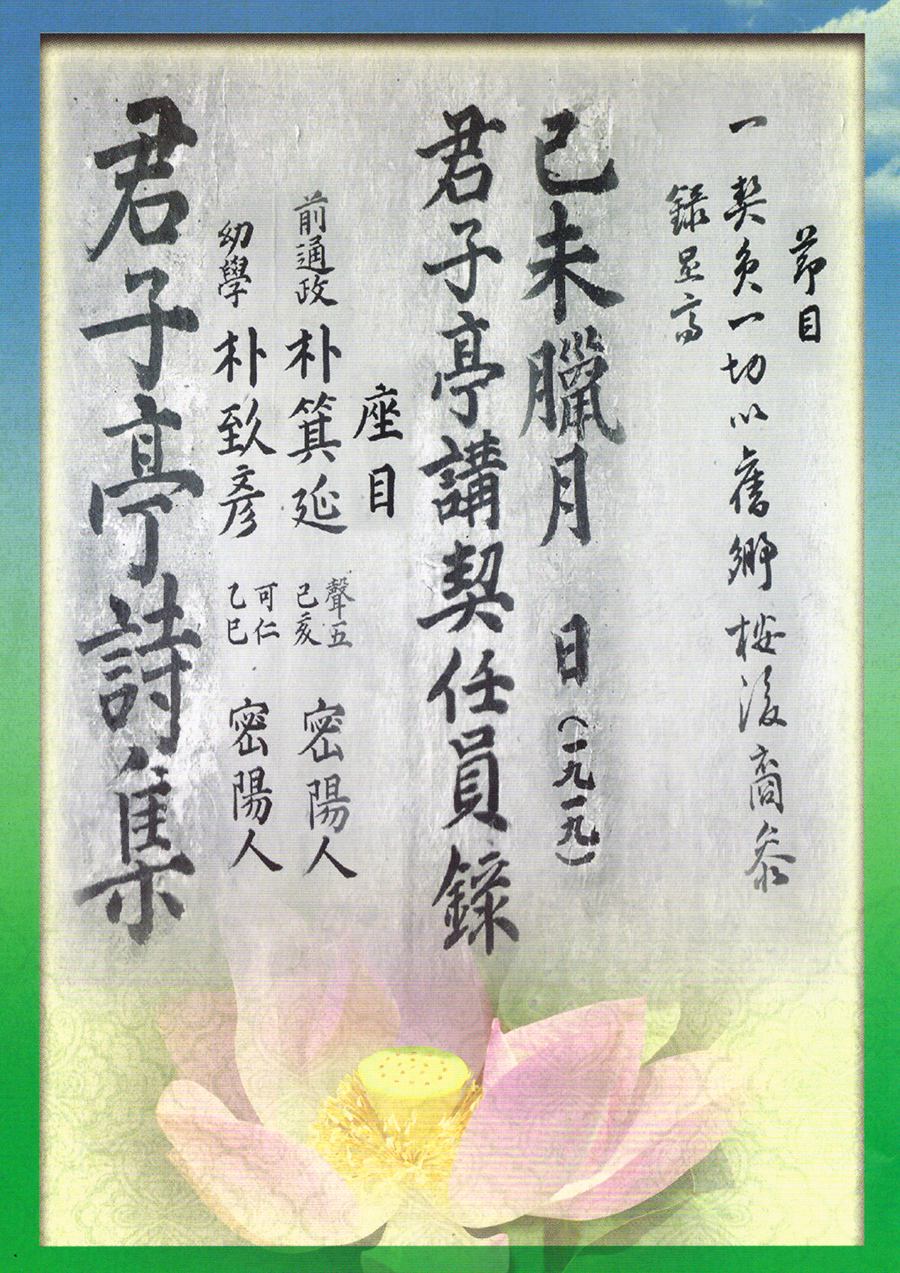 節目
一 契員一切以舊鄉楼後商參
錄
己未臘月 日(一九一九)
君子亭講契任員錄
座目
前通政 朴箕延 聲五 己亥 密陽人
幼學 朴致彦 可仁 乙巳 密陽人
君子亭詩集